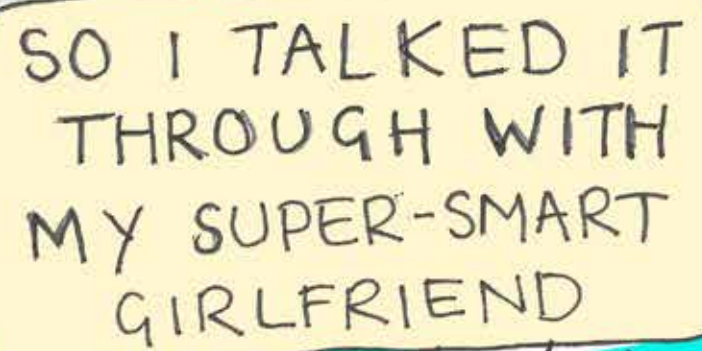 SO I TALKED IT
THROUGH WITH
MY SUPER-SMART
GIRLFRIEND